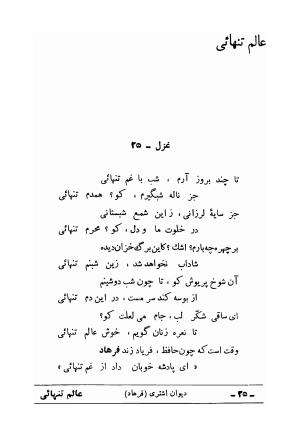 عالم تنهائی
غزل - ۲۵
تا چند بروز آرم ، شب با غم تنهائی
جز ناله شبگیرم ، کو؟ همدم تنهائی
جز سایهٔ لرزانی ، ز این شمع شبستانی
در خلوت ما و دل ، کو؟ محرم تنهائی
بر چهره چه بارم؟ اشک؟ کاین برگ خزان دیده
شاداب نخواهد شد ، زین شبنم تنهائی
آن شوخ پریوش کو ، تا چون شب دوشینم
از بوسه کند سرمست ، در این دم تنهائی
ای ساقی شکّر لب ، جام می لعلت کو؟
تا نعره زنان گویم ، خوش عالم تنهائی
وقت است که چون حافظ ، فریاد زند فرهاد
« ای پادشه خوبان داد از غم تنهائی »
عالم تنهائی
دیوان اشتری (فرهاد)
- ۲۵ -